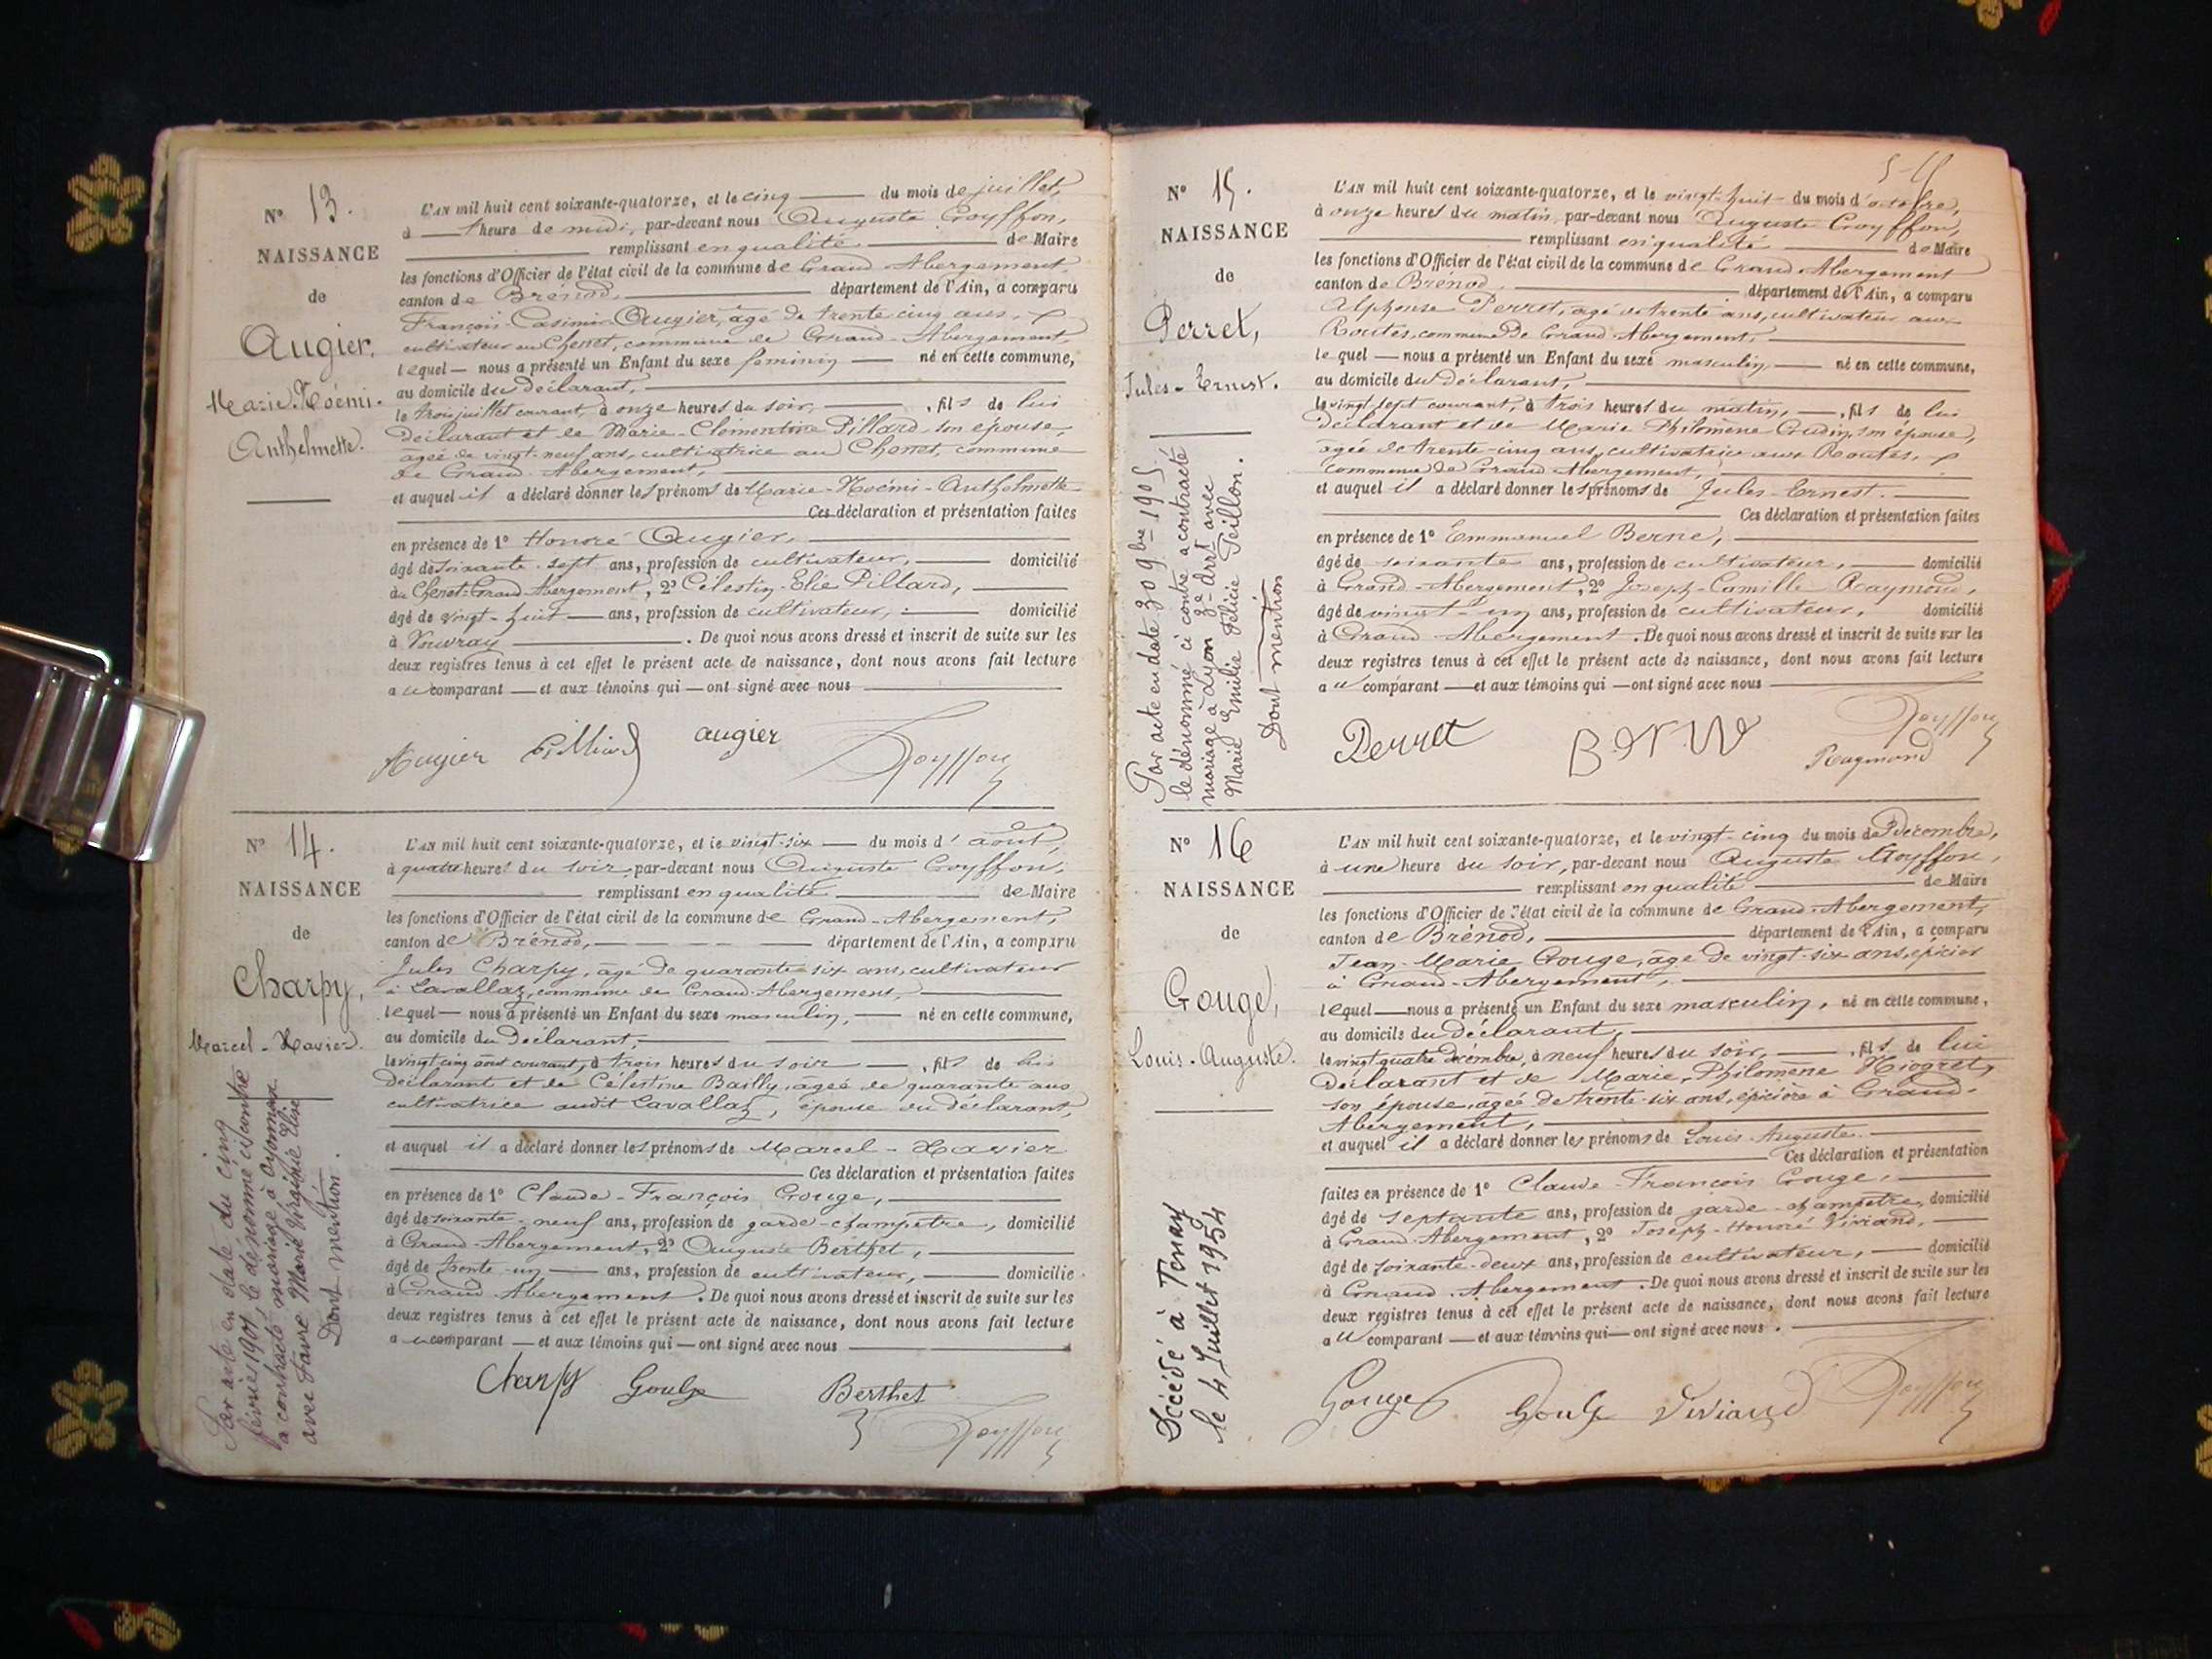 Nº 13.
NAISSANCE
de
Augier,
Marie Noémi.
Anthelmette.
L'AN mil huit cent soixante-quatorze, et le cinq du mois de juillet,
à heure de midi, par-devant nous Auguste Goyffon,
remplissant en qualité de Maire
les fonctions d'Officier de l'état civil de la commune de Grand-Abergement
canton de Brénod, département de l'Ain, a comparu
François-Casimir Augier, âgé de trente cinq ans,
cultivateur au Chenet, commune de Grand-Abergement,
lequel nous a présenté un Enfant du sexe feminin né en cette commune,
au domicile du déclarant,
le trois juillet courant, à onze heures du soir, , fils de lui
déclarant et de Marie-Clémentine Pillard son épouse,
âgée de vingt-neuf ans, cultivatrice au Chenet, commune
de Grand-Abergement,
et auquel il a déclaré donner les prénoms de Marie-Noémi-Anthelmette
Ces déclaration et présentation faites
en présence de 1º Honoré Augier,
âgé de soixante-sept ans, profession de cultivateur, domicilié
au Chenet-Grand-Abergement, 2º Célestin-Elie Pillard,
âgé de vingt-huit ans, profession de cultivateur, domicilié
à Vouvray . De quoi nous avons dressé et inscrit de suite sur les
deux registres tenus à cet effet le présent acte de naissance, dont nous avons fait lecture
au comparant et aux témoins qui ont signé avec nous
Augier Pillard augier Goyffon
Nº 14.
NAISSANCE
de
Charpy,
Marcel-Xavier.
Par acte en date du cinq
février 1901, le dénommé ci contre
a contracté mariage à Oyonnax
avec Favre Marie Virginie Elise
Dont mention.
L'AN mil huit cent soixante-quatorze, et le vingt-six du mois d'août,
à quatre heures du soir, par-devant nous Auguste Goyffon,
remplissant en qualité de Maire
les fonctions d'Officier de l'état civil de la commune de Grand-Abergement,
canton de Brénod, département de l'Ain, a comparu
Jules Charpy, âgé de quarante-six ans, cultivateur
à Lavallaz, commune de Grand-Abergement,
lequel nous a présenté un Enfant du sexe masculin, né en cette commune,
au domicile du déclarant,
le vingt cinq août courant, à trois heures du soir , fils de lui
déclarant et de Célestine Bailly, âgée de quarante ans
cultivatrice audit Lavallaz, épouse du déclarant,
et auquel il a déclaré donner les prénoms de Marcel-Xavier
Ces déclaration et présentation faites
en présence de 1º Claude-François Gouge,
âgé de soixante-neuf ans, profession de garde-champêtre, domicilié
à Grand-Abergement, 2º Auguste Berthet,
âgé de trente-un ans, profession de cultivateur, domicilié
à Grand-Abergement. De quoi nous avons dressé et inscrit de suite sur les
deux registres tenus à cet effet le présent acte de naissance, dont nous avons fait lecture
au comparant et aux témoins qui ont signé avec nous
Charpy Gouge Berthet
Goyffon
Nº 15.
NAISSANCE
de
Perret,
Jules-Ernest.
Par acte en date 30 9bre 1905
le dénommé ci contre a contracté
mariage à Lyon 3e arrt avec
Marie Emilie Félicie Teillon.
Dont mention
L'AN mil huit cent soixante-quatorze, et le vingt-huit du mois d'octobre,
à onze heures du matin, par-devant nous Auguste Goyffon,
remplissant en qualité de Maire
les fonctions d'Officier de l'état civil de la commune de Grand-Abergement
canton de Brénod, département de l'Ain, a comparu
Alphonse Perret, âgé de trente ans, cultivateur aux
Routes, commune de Grand-Abergement,
lequel nous a présenté un Enfant du sexe masculin né en cette commune,
au domicile du déclarant,
le vingt sept courant, à trois heures du matin, , fils de lui
déclarant et de Marie Philomène son épouse,
âgée de trente-cinq ans, cultivatrice aux Routes,
commune de Grand-Abergement,
et auquel il a déclaré donner les prénoms de Jules-Ernest.
Ces déclaration et présentation faites
en présence de 1º Emmanuel Berne,
âgé de soixante ans, profession de cultivateur, domicilié
à Grand-Abergement, 2º Joseph-Camille Raymond,
âgé de vingt-un ans, profession de cultivateur, domicilié
à Grand-Abergement. De quoi nous avons dressé et inscrit de suite sur les
deux registres tenus à cet effet le présent acte de naissance, dont nous avons fait lecture
au comparant et aux témoins qui ont signé avec nous
Perret Berne Goyffon
Raymond
Nº 16
NAISSANCE
de
Gouge,
Louis-Auguste.
Décédé à Tenay
le 4 Juillet 1954
L'AN mil huit cent soixante-quatorze, et le vingt-cinq du mois de Décembre,
à une heure du soir, par-devant nous Auguste Goyffon,
remplissant en qualité de Maire
les fonctions d'Officier de l'état civil de la commune de Grand-Abergement,
canton de Brénod, département de l'Ain, a comparu
Jean-Marie Gouge, âgé de vingt-six ans, épicier
à Grand-Abergement,
lequel nous a présenté un Enfant du sexe masculin, né en cette commune,
au domicile du déclarant,
le vingt quatre décembre, à neuf heures du soir, , fils de lui
déclarant et de Marie-Philomène Niogret,
son épouse, âgée de trente-six ans, épicière à Grand-
Abergement,
et auquel il a déclaré donner les prénoms de Louis-Auguste.
Ces déclaration et présentation
faites en présence de 1º Claude-François Gouge,
âgé de septante ans, profession de garde-champêtre, domicilié
à Grand-Abergement, 2º Joseph-Honoré Viviand,
âgé de soixante-deux ans, profession de cultivateur, domicilié
à Grand-Abergement. De quoi nous avons dressé et inscrit de suite sur les
deux registres tenus à cet effet le présent acte de naissance, dont nous avons fait lecture
au comparant et aux témoins qui ont signé avec nous.
Gouge Gouge Viviand Goyffon